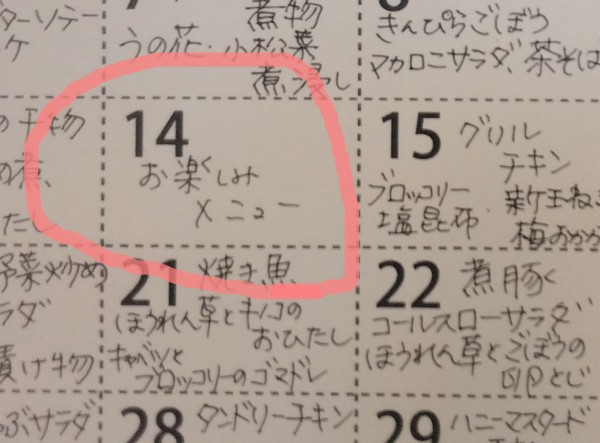 ターソテー
ケ
煮物
うの花・小松菜
煮浸し
きんぴらごぼう
マカロニサラダ、茶そば
の干物
の煮、
たし
14
お楽しみ
メニュー
15 グリル
チキン
ブロッコリー
塩昆布
新玉ねぎ
梅おかか
野菜炒め
ラダ
漬け物
21 焼き魚
ほうれん草とキノコの
おひたし
キャベツと
ブロッコリーのゴマドレ
22 煮豚
コールスローサラダ
ほうれん草とごぼうの
卵とじ
ぶサラダ
28 タンドリーチキン
29 ハニーマスタード